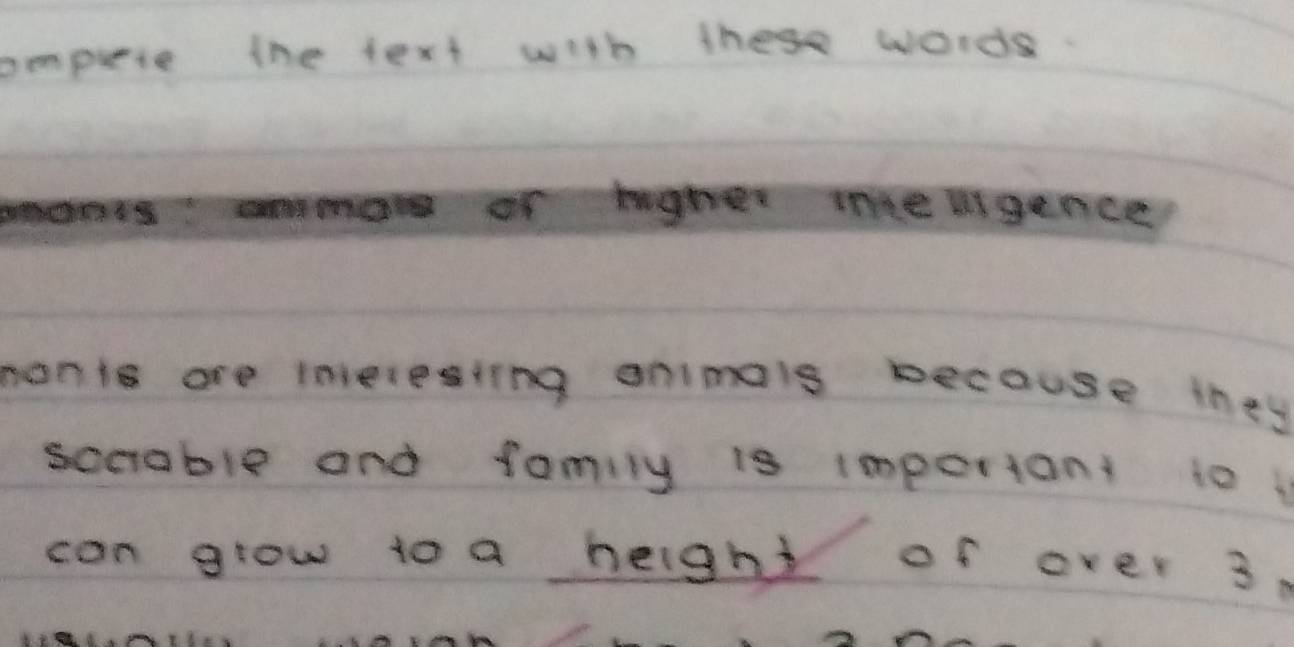 omplete the text with these words.
phants: animals of higher intelligence
hants are interesting animals because they
sociable and family is important to
can grow to a height of over 3
usually weigh